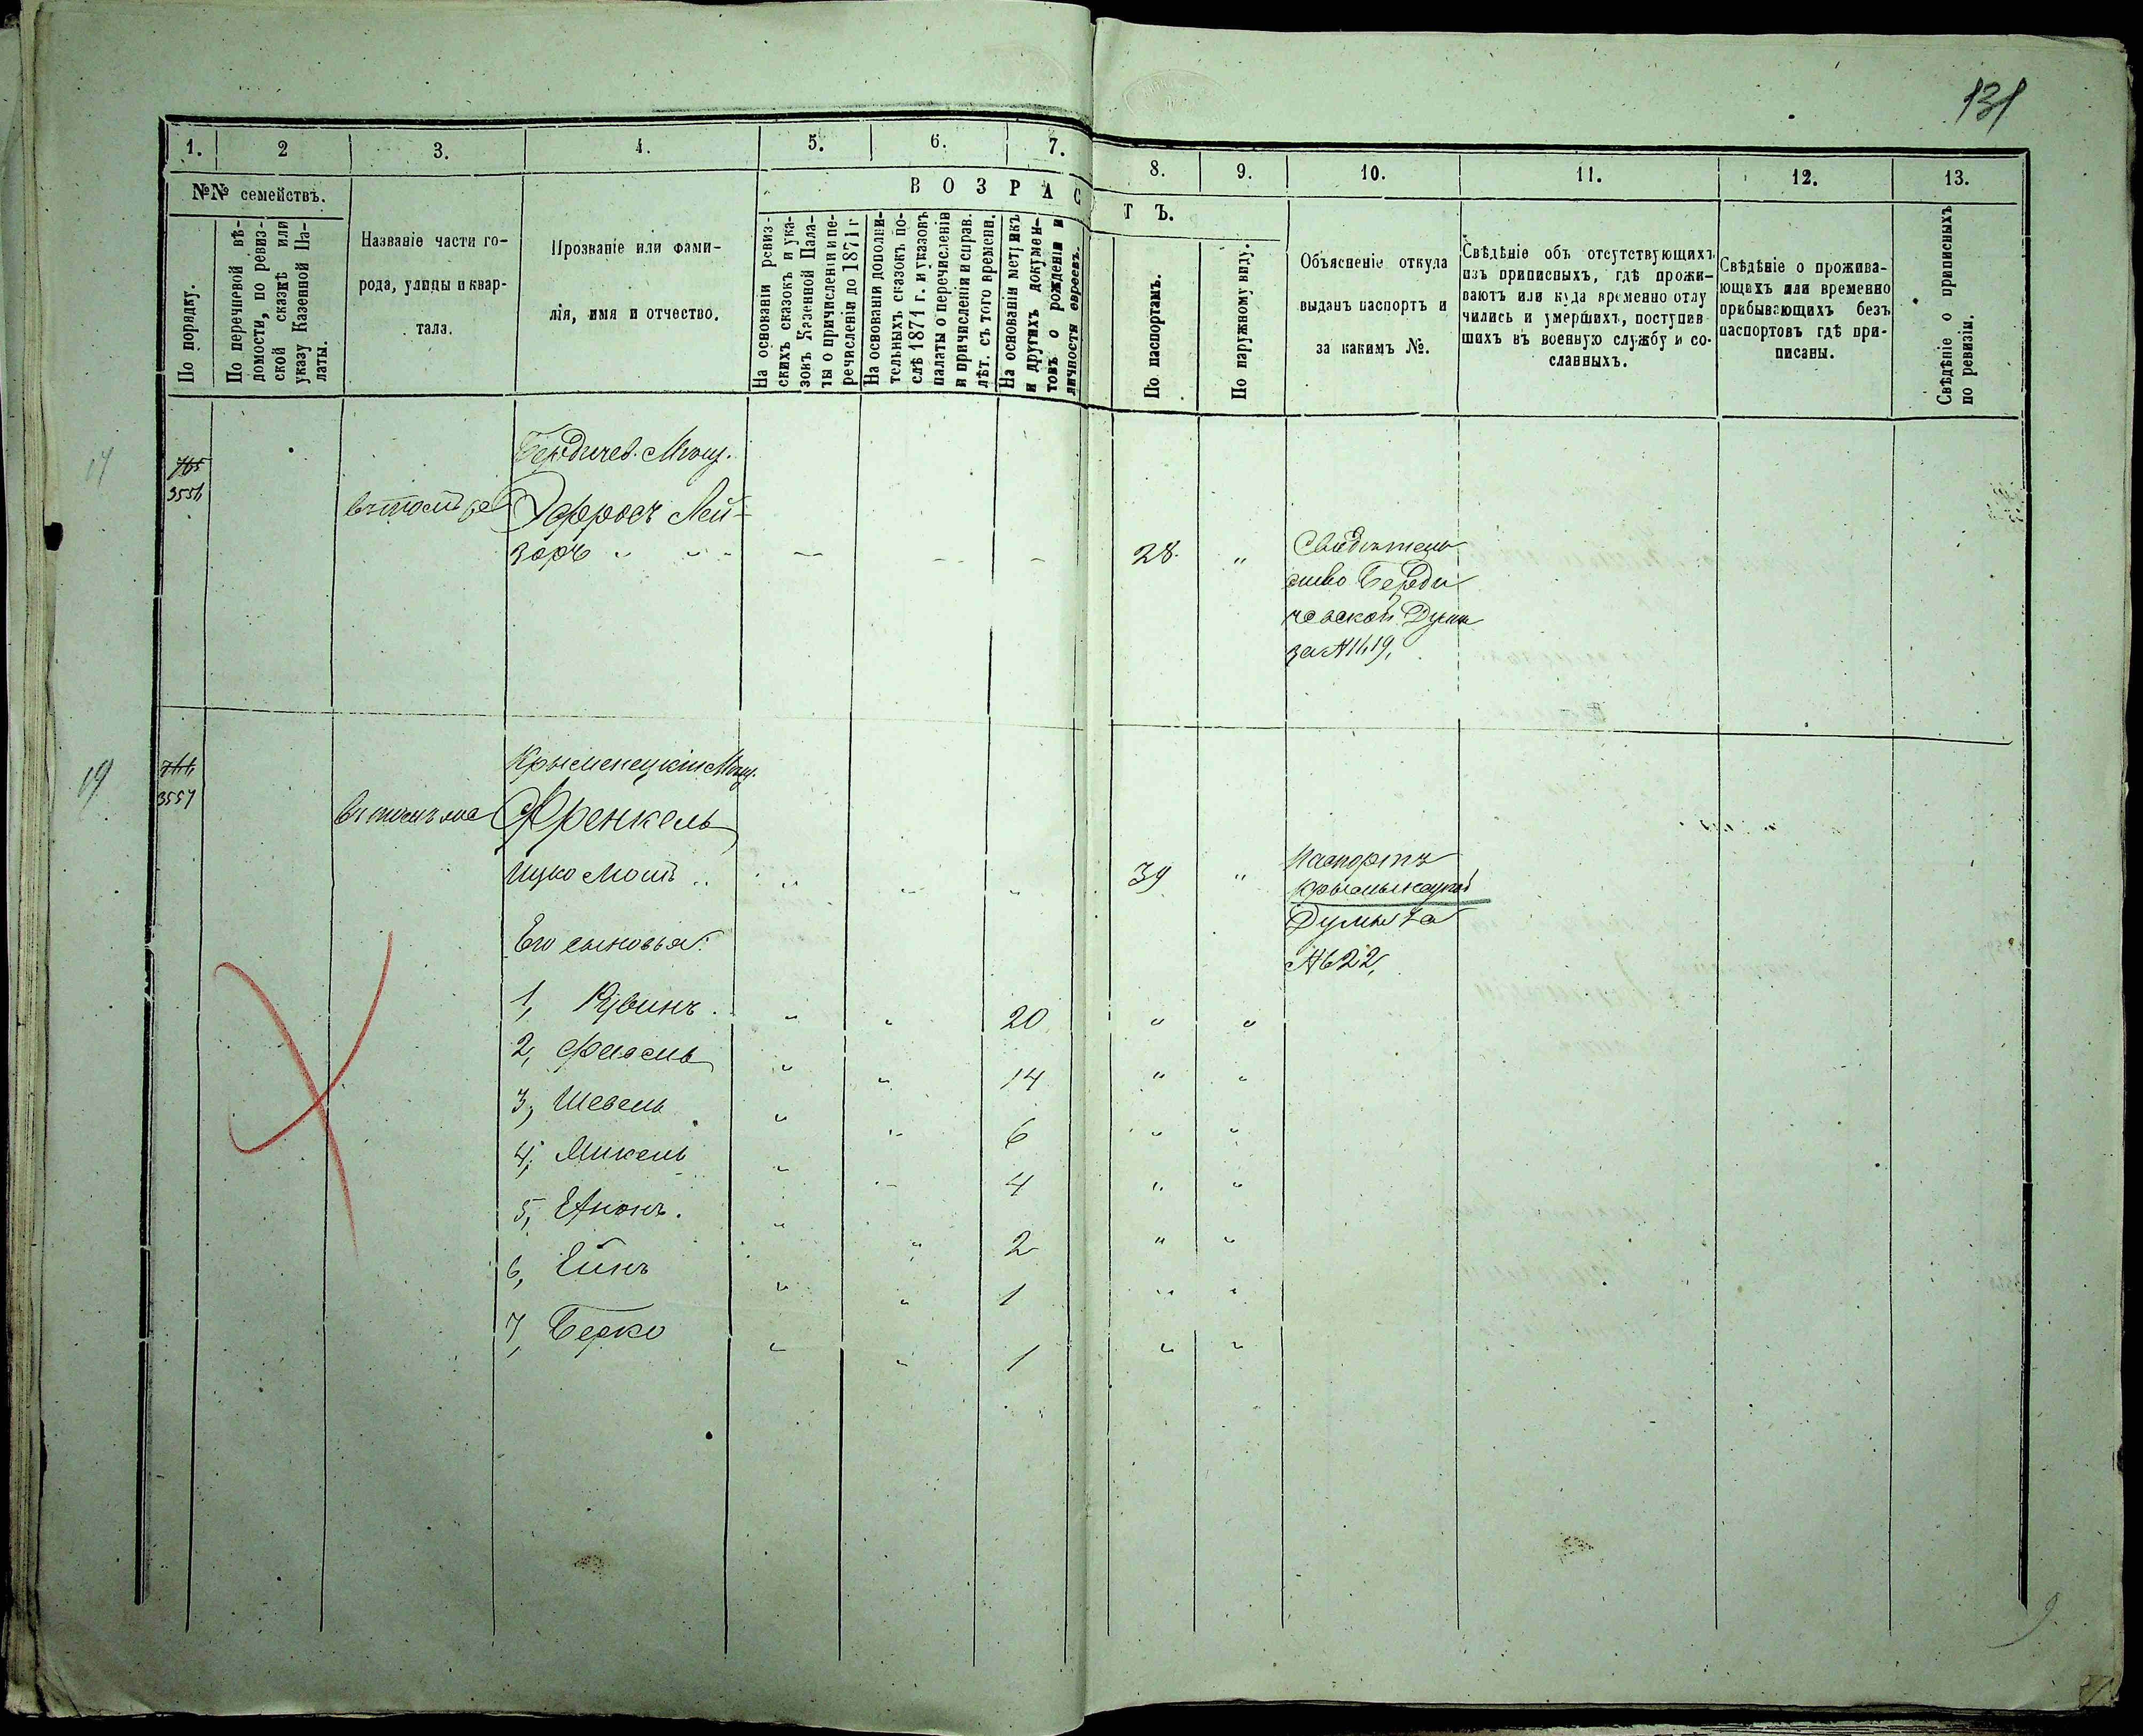 131
1.
2
3.
4.
5.
6.
7.
8.
9.
10.
11.
12.
13.
№№ семействъ.
По порядку.
По перечневой вѣ-
домости, по ревиз-
ской сказкѣ или
указу Казенной Па-
латы.
Названіе части го-
рода, улицы и квар-
тала.
Прозваніе или фами-
лія, имя и отчество.
ВОЗРАС
ТЪ.
На основаніи ревиз-
скихъ сказокъ и ука-
зокъ Казенной Пала-
ты о причисленіи и пе-
речисленіи до 1871 г
На основаніи дополни-
тельныхъ сказокъ по-
слѣ 1871 г. и указовъ
палаты о перечисленіи
и причисленіи и справ.
лѣт. съ того времени.
На основаніи метрикъ
и другихъ докумен-
товъ о рожденіи и
личности евреевъ.
По паспортамъ.
По наружному виду.
Объясненіе откуда
выданъ паспортъ и
за какимъ №.
Свѣдѣніе объ отсутствующихъ
изъ приписныхъ, гдѣ прожи-
ваютъ или куда временно отлу
чились и умершихъ, поступив
шихъ въ военную службу и со-
сланныхъ.
Свѣдѣніе о прожива-
ющихъ или временно
прибывающихъ безъ
паспортовъ гдѣ при-
писаны.
Свѣдѣніе о приписныхъ
по ревизіи.
17
765
3556
Бердичев. Мѣщ.
Лей-
зоръ
28.
Свидѣтель
ство Берди
чевской Думы
19
3557
Кременецкій Мѣщ.
Френкель
Ицко Мош.
39
Паспортъ
Думы за
№ 622,
Его сыновья:
1, Рувинъ
20
2, Файвель
14
3, Шевель
6
4, Микель
4
5,
2
6,
1
7, Берко
1